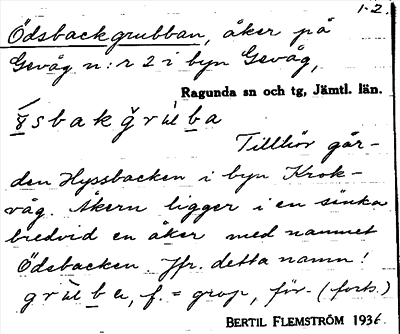 1-2.
Ödsbackgrubban, åker på
Gevåg n:r 2 i byn Gevåg,
Ragunda sn och tg, Jämtl. län.
Tillhör går-
den Hyssbacken i byn Krok-
våg. Åkern ligger i en sänka
bredvid en åker med namnet
Ödsbacken. Jfr. detta namn!
f. = grop, för. (forts.)
BERTIL FLEMSTRÖM 1936.